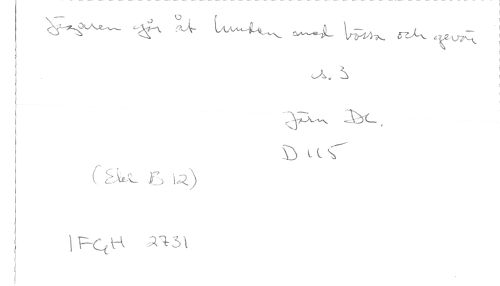 Jägaren går åt lunden med bössa och gevär
s. 3
Järn Dl.
D 115
(Ekl B 12)
IFGH 2731